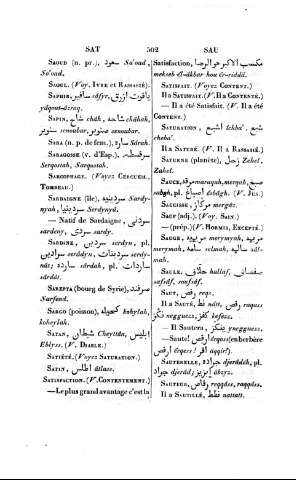 SAT 502 SAU
SAOUD (n. pr.), سعود So'oud,
So'oud.
SAOUL. (Voy. IVRE et RASSASIÉ).
SAPHIR, سافير sâfyr, ياقوت ازرق
yâqout-âzraq.
SAPIN, شاح châh, châhah,
سنوبر senoubar, صنوبر senoubar.
SARA (n. p. de fem.), سارة Sârah.
SARAGOSSE (v. d'Esp.), سرقسطة
Serqostah, Saraqostah.
SARCOPHAGE. (Voyez CERCUEIL,
TOMBEAU.)
SARDAIGNE (île), سردينية Sardynyah,
سردينيا Serdynyâ.
— Natif de Sardaigne, سردني
sardeny, سردي sardy.
SARDINE, سردين serdyn, pl.
سرادين serâdyn, سردينات serdynât;
سارده sârdah, pl. ساردات
sârdât.
SAREPTA (bourg de Syrie), صرفند
Sarfand.
SARGO (poisson), كحيلة kohaylah,
koheylah.
SATAN, شيطان Chayttân, ابليس
Eblyss. (V. DIABLE.)
SATIÉTÉ. (Voyez SATURATION.)
SATIN, اطلس âtlass.
SATISFACTION. (V. CONTENTEMENT.)
—Le plus grand avantage c'est la
Satisfaction, مكسب الاكبر هو الرضا
mekseb êl-âkbar hou êr-riddâ.
SATISFAIT. (V. CONTENT.)
Il a SATISFAIT. (V. Il a CONTENTÉ.)
— Il a été Satisfait. (V. Il a été
CONTENT.)
SATURATION, اشبع êchba', شبع
cheba'.
Il a SATURÉ. (V. Il a RASSASIÉ.)
SATURNE (planète), زحل Zahel,
Zohel.
SAUCE, مرقة maraqah, merqah, صبغ
sabgh, pl. اصباغ âsbâgh. (V. JUS.)
SAUCISSE, مركاز merqâz.
SAUF (adj.). (Voy. SAIN.)
— (prép.) (V. HORMIS, EXCEPTÉ.)
SAUGE, مريمية merymyah, مريمه
meryemah, سلمة selmah, سالمة sâlmah.
SAULE, خلاف hallaf, صفصاف
safsâf, soufsâf.
SAUT, رقص reqs.
Il a SAUTÉ, نط natt, رقص raqass
نگز neggueze, كفز kefeze.
— Il Sautera, ينگز yneggueze.
—Saute! ارقص ôrqoss (en berbère
ارقص êrqess! اقير âqqir!).
SAUTERELLE, جراده djerâdeh, pl.
جراد djerâd; ابزيز âbzyz.
SAUTEUR, رقاص reqqâss, raqqâss.
Il a SAUTILLÉ, نطط nattatt.